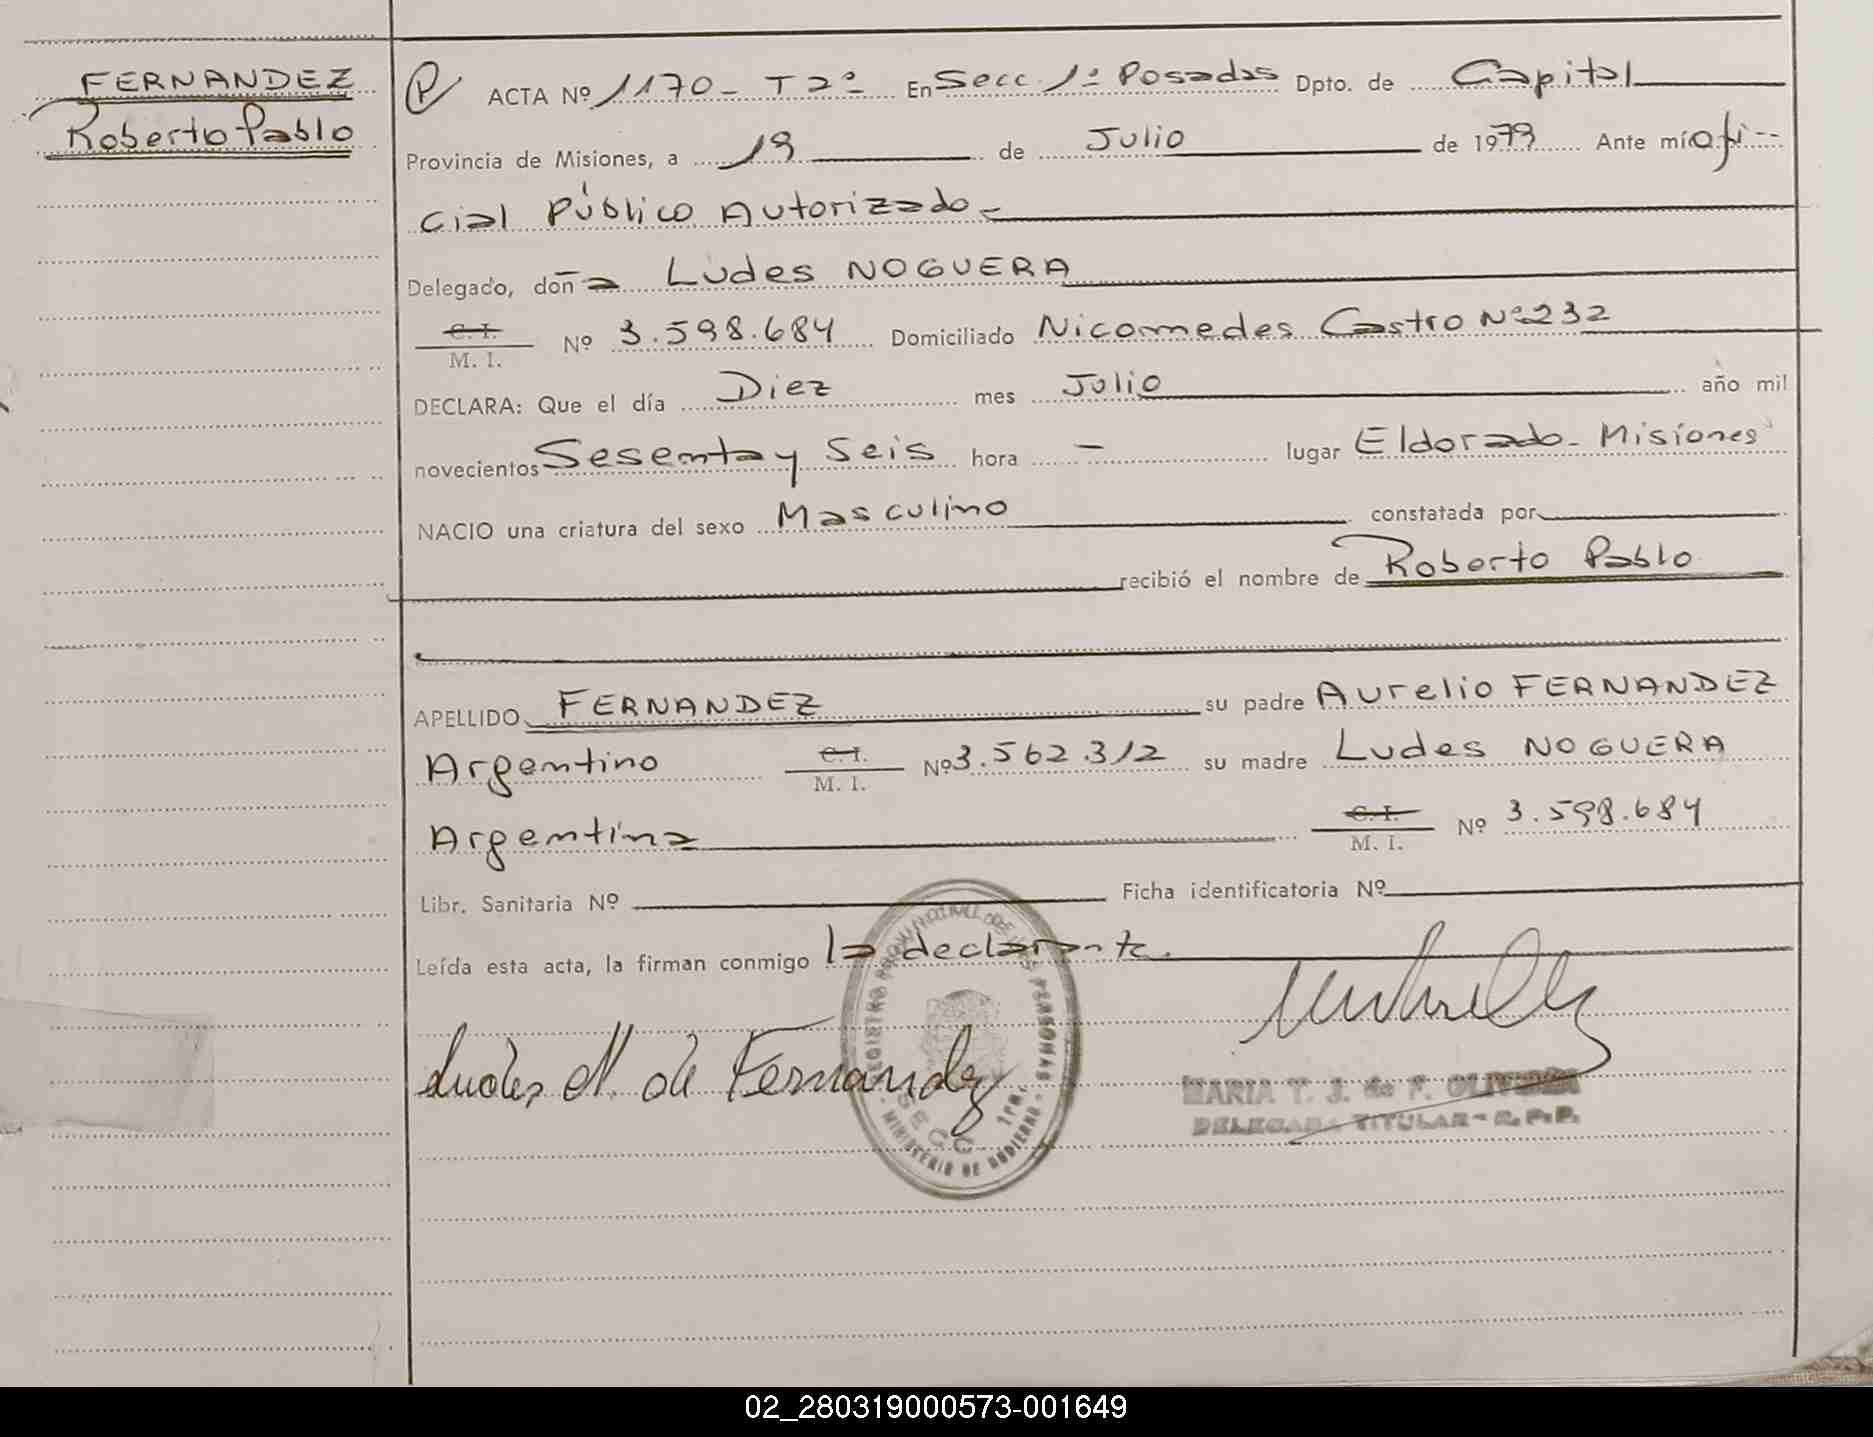 FERNANDEZ
Roberto Pablo
P ACTA Nº 1170- T 2º En Secc. 1ª Posadas Dpto. de Capital
Provincia de Misiones, a 19 de Julio de 1979 Ante mí ofi--
cial Público Autorizado-
Delegado, doña Ludes NOGUERA
C. I.
M. I. Nº 3.598.684 Domiciliado Nicomedes Castro Nº 232
DECLARA: Que el día Diez mes Julio año mil
novecientos Sesenta y Seis hora - lugar Eldorado-Misiones
NACIO una criatura del sexo Masculino constatada por
recibió el nombre de Roberto Pablo
APELLIDO FERNANDEZ su padre Aurelio FERNANDEZ
Argentino C. I. M. I. Nº 3.562.312 su madre Ludes NOGUERA
Argentina C. I. M. I. Nº 3.598.684
Libr. Sanitaria Nº Ficha identificatoria Nº
Leída esta acta, la firman conmigo la declarante.
Ludes N. de Fernandez
REGISTRO PROVINCIAL DE LAS PERSONAS
SECC 1ra.
MINISTERIO DE GOBIERNO
MARIA T. J. de F. OLIVEIRA
DELEGADA TITULAR - R.P.P.
02_280319000573-001649